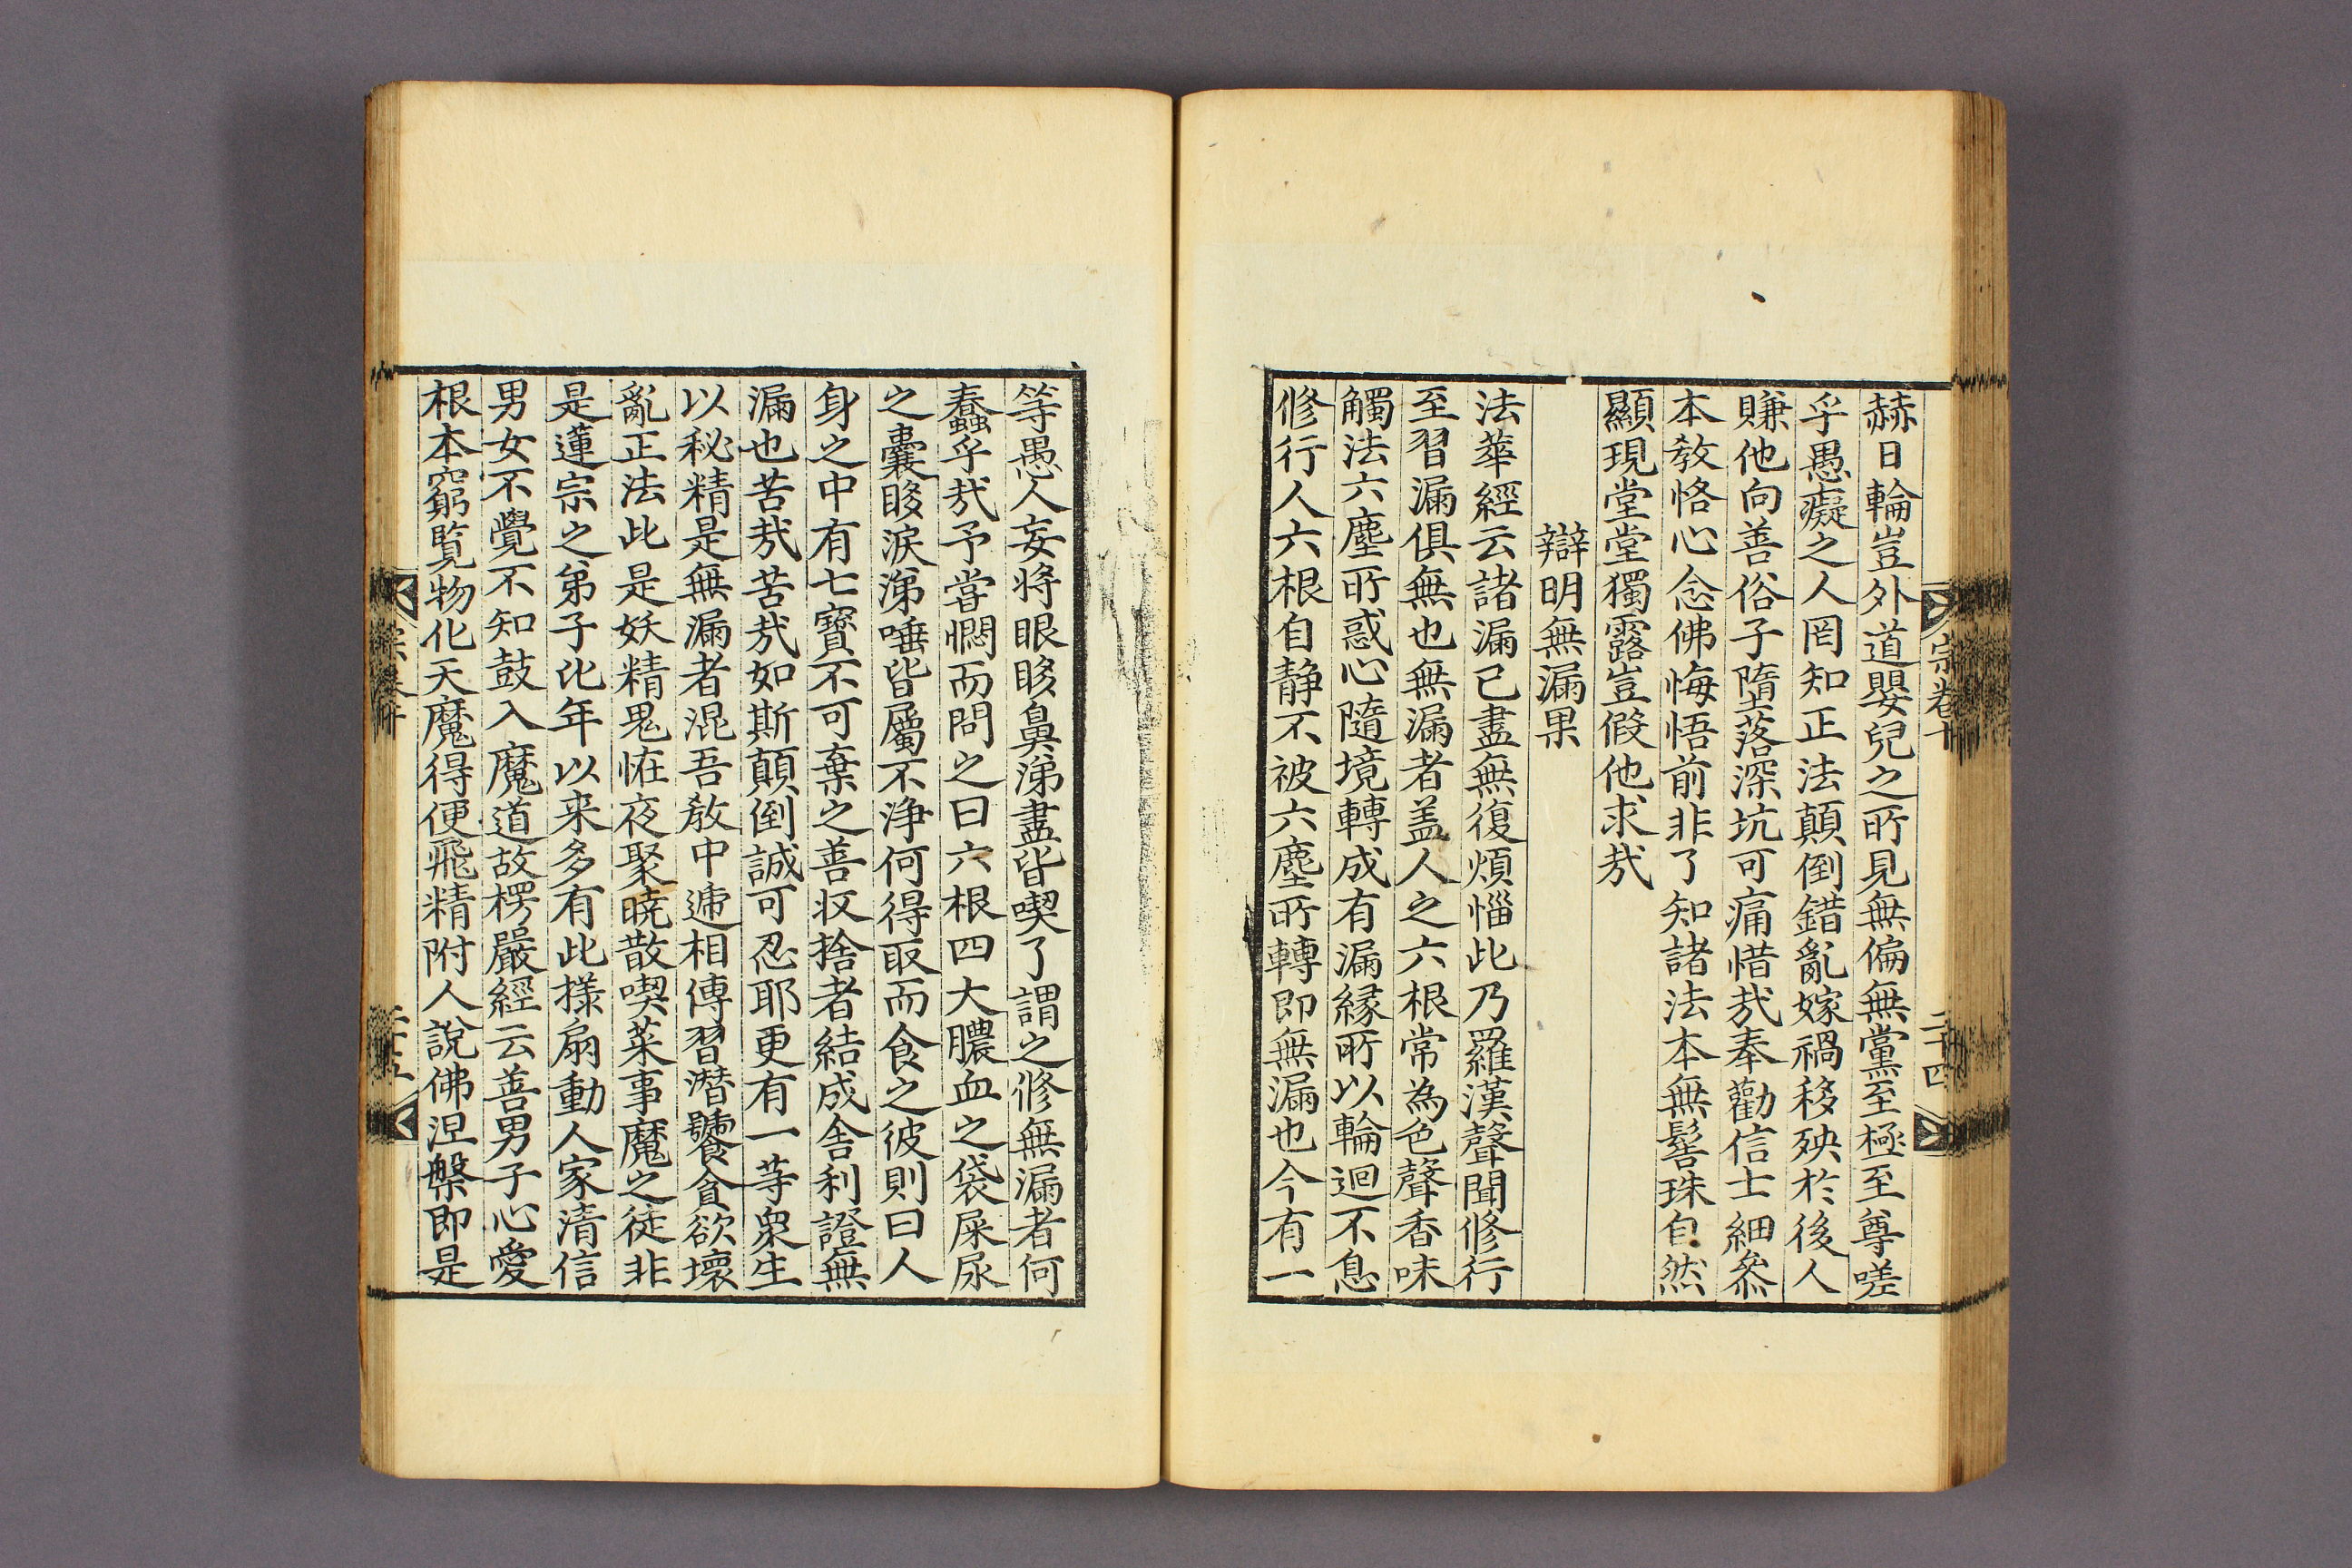 赫日輪豈外道嬰兒之所見無偏無黨至極至尊嗟
乎愚癡之人罔知正法顛倒錯亂嫁禍移殃於後人
賺他向善俗子墮落深坑可痛惜㢤奉勸信士細叅
本敎恪心念佛悔悟前非了知諸法本無髻珠自然
顯現堂堂獨露豈假他求㢤
辯明無漏果
法華經云諸漏已盡無復煩惱此乃羅漢聲聞修行
至習漏俱無也無漏者盖人之六根常為色聲香味
觸法六塵所惑心隨境轉成有漏緣所以輪迴不息
修行人六根自静不被六塵所轉即無漏也今有一
宗卷十
二十四
等愚人妄将眼眵鼻涕盡皆喫了謂之修無漏者何
蠢乎㢤予嘗憫而問之曰六根四大膿血之袋屎尿
之囊眵淚涕唾皆屬不浄何得取而食之彼則曰人
身之中有七寳不可棄之善収捨者結成舍利證無
漏也苦㢤苦㢤如斯顛倒誠可忍耶更有一等衆生
以秘精是無漏者混吾敎中遞相傳習潜饕貪欲壞
亂正法此是妖精鬼恠夜聚曉散喫菜事魔之徒非
是蓮宗之弟子比年以来多有此様扇動人家清信
男女不覺不知鼓入魔道故楞嚴經云善男子心愛
根本窮覧物化天魔得便飛精附人說佛涅槃即是